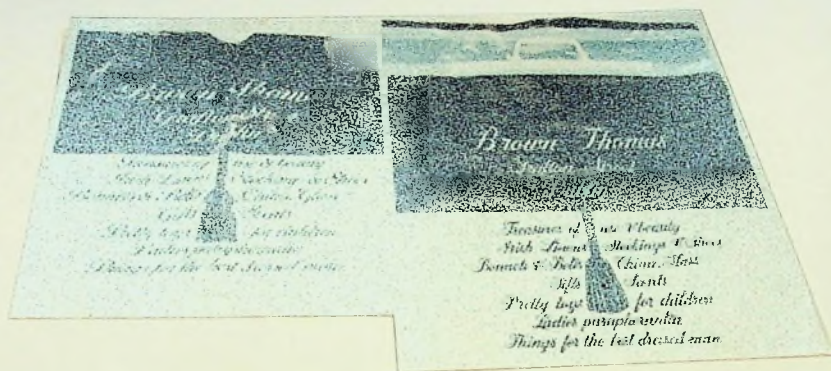 Brown Thomas
Grafton Street
Treasures of use & beauty
Irish Linens Stockings & Shoes
Bonnets & Belts China, Glass
Gifts Scents
Pretty toys for children
Things for the best dressed man
Brown Thomas
Grafton Street
Treasures of use & beauty
Irish Linens Stockings & Shoes
Bonnets & Belts China, Glass
Gifts Scents
Pretty toys for children
Ladies paraphernalia
Things for the best dressed man